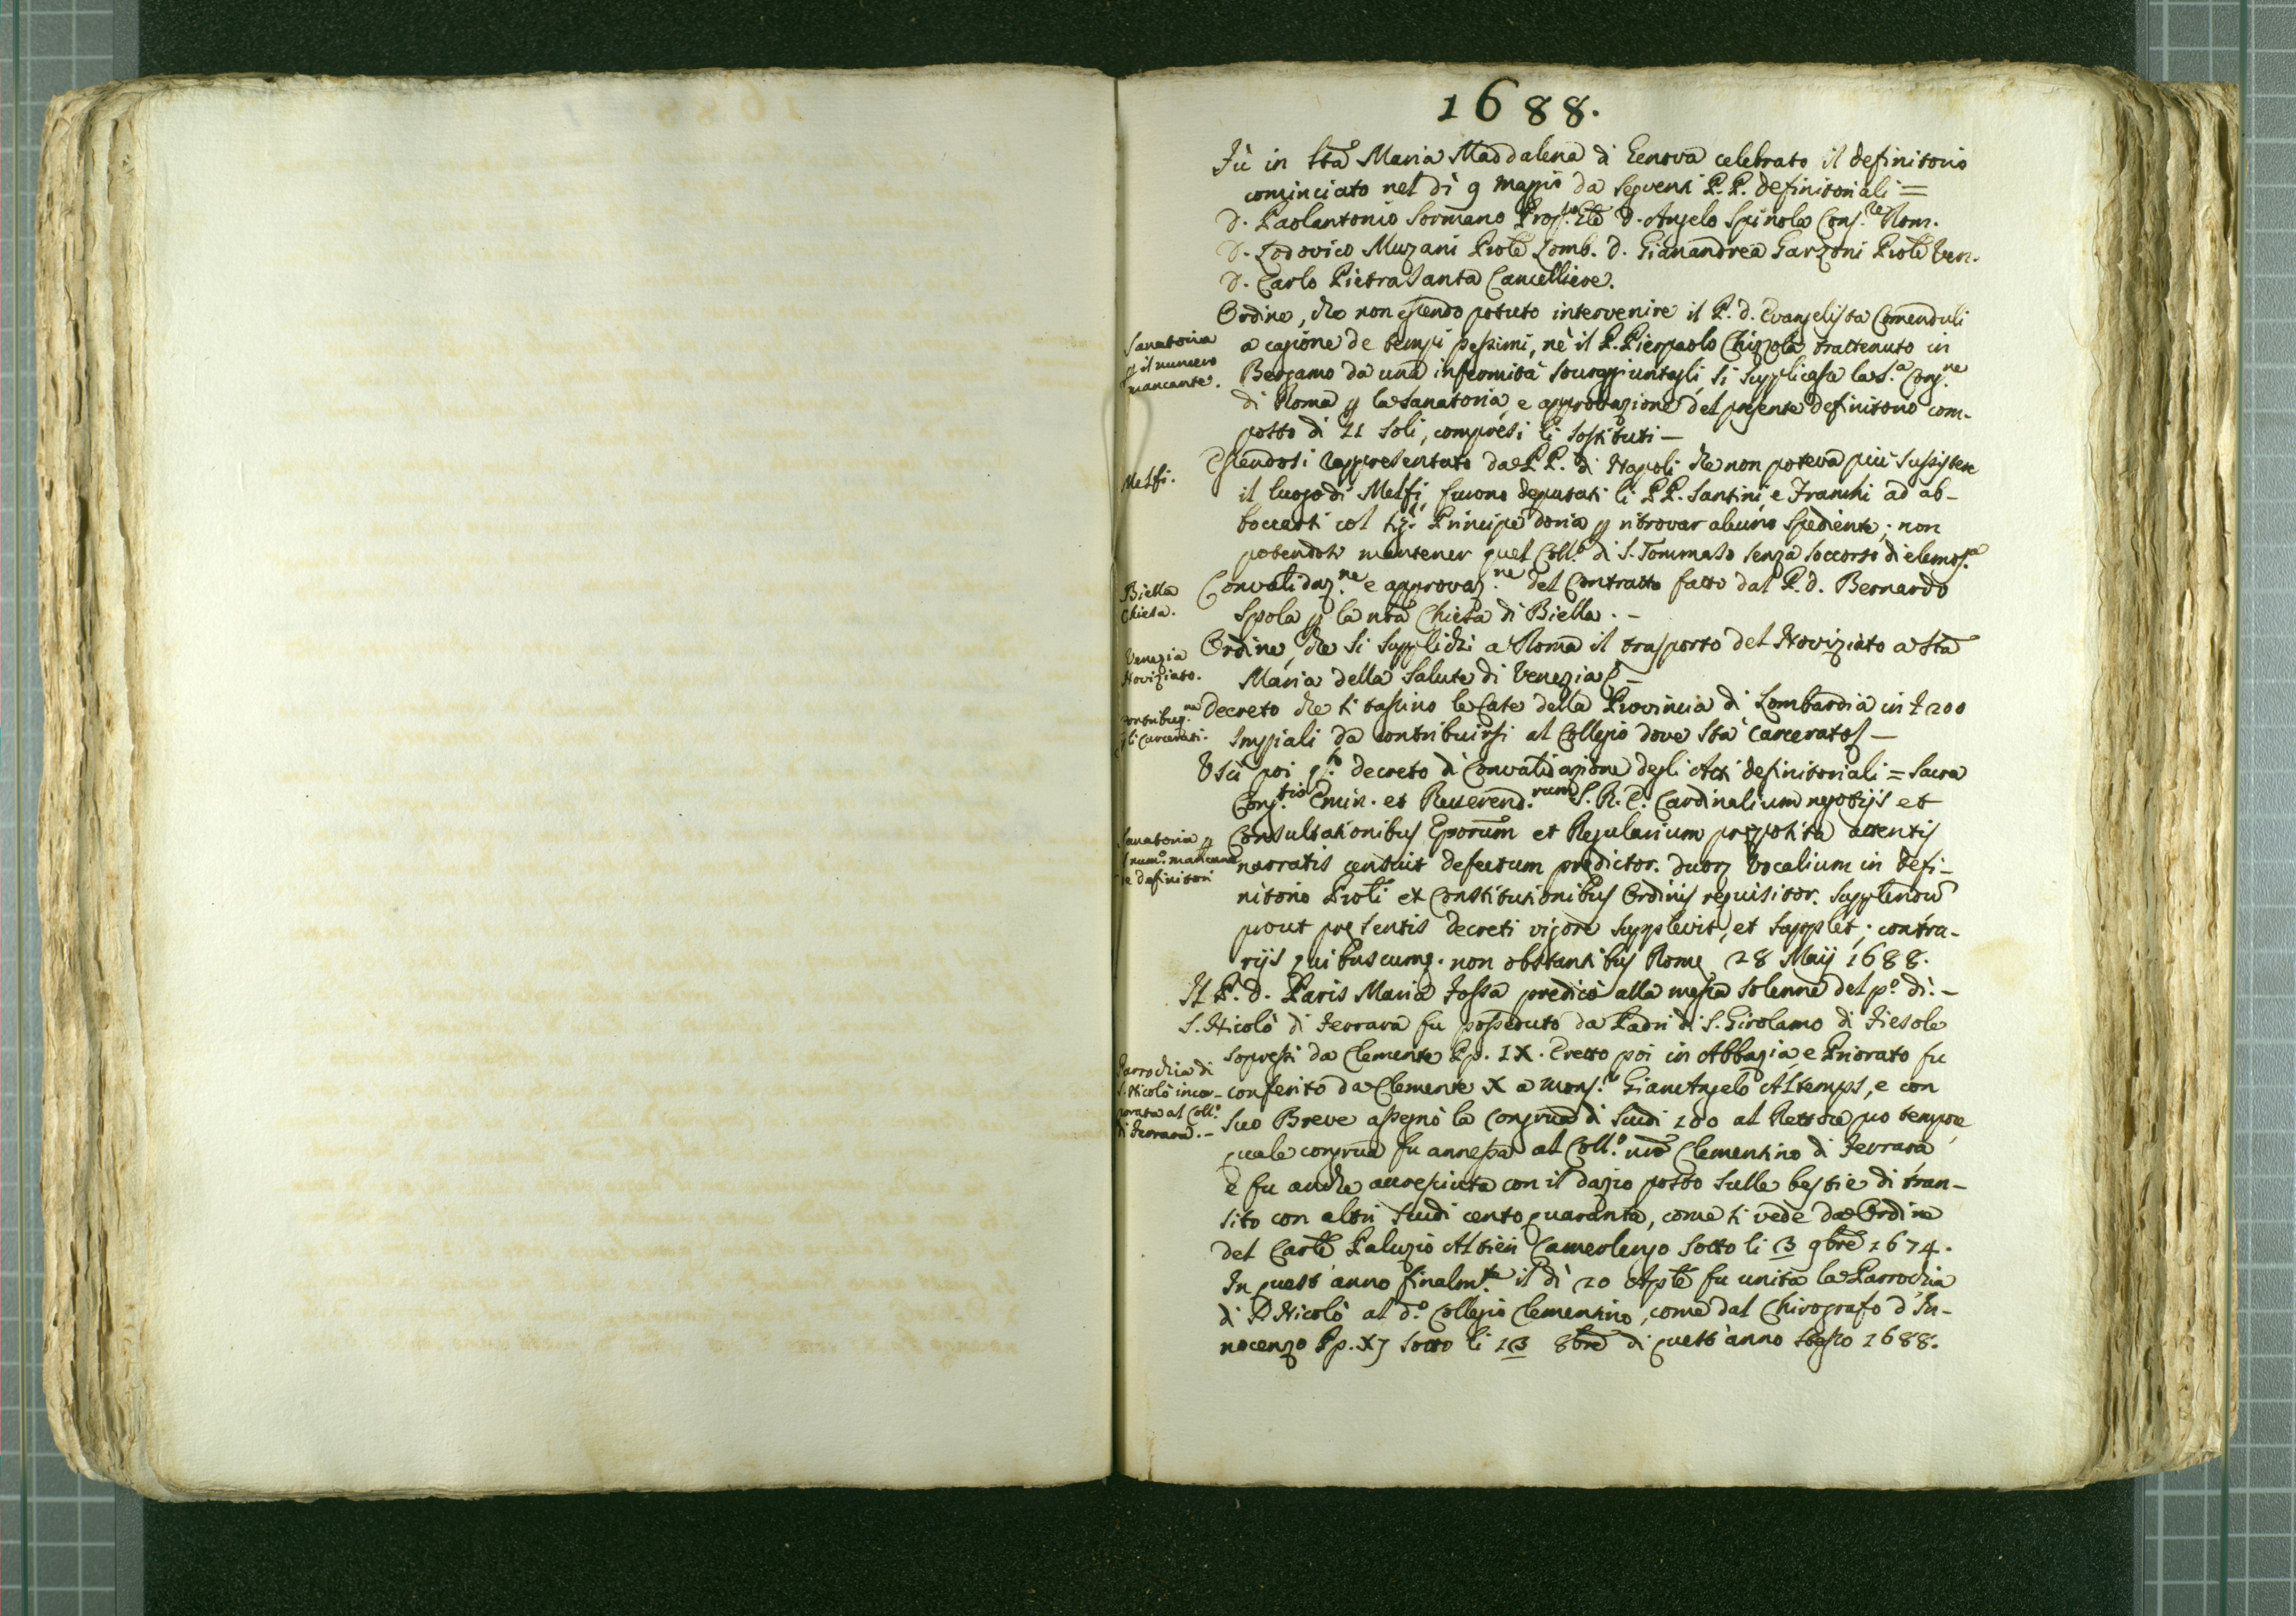 1688.
Fù in Sta Maria Maddalena di Genova celebrato il definitorio
cominciato nel dì 9 Maggio da seguenti P.P. definitoriali =
D. Paolantonio Sormano Prop.to Gle D. Angelo Spinola Cons.re Rom.
D. Lodovico Muzani Prole Lomb. D. Gianandrea Garzoni Prole Ven.
D. Carlo Pietrasanta Cancelliere.
Ordine, che non essendo potuto intervenire il P. d. Evangelista Comenduli
Sanatoria
p il numero
mancante.
a cagione de tempi pessimi, nè il P. Pierpaolo Chizzola trattenuto in
Bergamo da una infermità souraggiuntagli, si supplicasse la S.a Cong.ne
di Roma p la sanatoria, e approvazione del presente definitorio com-
posto di 11 soli, compresi li sostituti —
Melfi.
Essendosi rappresentato da PP. di Napoli che non poteva più sussistere
il luogo di Melfi, furono deputati li PP. Santini, e Franchi ad ab-
boccarsi col Sig.r Principe Doria p ritrovar alcuno spediente; non
potendosi mantener quel Coll.o di S. Tommaso senza soccorso di elemos.a
Biella
Chiesa.
Convalidaz.ne e approvaz.ne del Contratto fatto dal P. d. Bernardo
Spola p la nra Chiesa di Biella. —
Venezia
Noviziato.
Ordine, che si supplichi a Roma il trasporto del Noviziato a Sta
Maria della Salute di Venezia —
Contribuz.ne
p li Carcerati.
Decreto che si tassino le Case della Provincia di Lombardia in £ 200
Impiali da contribuirsi al Collegio dove sta carcerato —
Uscì poi q.to decreto di Convalidazione degli Atti definitoriali = Sacra
Cong.tio Emin. et Reuerend.rum S. R. E. Cardinalium negotijs et
Sanatoria p
il num.o mancante
de definitori
Consultationibus Eporum et Regularium preposita attentis
narratis censuit defectum predictor. duor. Vocalium in defi-
nitorio Proli et Constitutionibus Ordinis requisitor. supplendu
prout presentis decreti vigore supplevit, et supplet; contra-
rijs quibuscumq. non obstantibus Rome 28 Maij 1688.
Il P. D. Paris Maria Fossa predicò alla messa solenne del p.o dì. —
S. Nicolò di Ferrara fu posseduto da Padri di S. Girolamo di Fiesole
Parrochia di
S. Nicolò incor-
porata al Coll.o
di Ferrara. —
soppressi da Clemente Pp. IX. Eretto poi in Abbazia, e Priorato fu
conferito da Clemente X a Mons.r Gianangelo Altemps, e con
suo Breve assegnò la congrua di scudi 100 al Rettore pro tempore
quale congrua fu annessa al Coll.o nro Clementino di Ferrara
e fu anche accresciuta con il dazio posto sulle bestie di tran-
sito con altri scudi cento quaranta, come si vede da Ordine
del Carle Paluzio Altieri Camerlengo sotto li 13 9bre 1674.
In quest'anno finalm.te il dì 20 Aple fu unita la Parrochia
di S. Nicolò al d.o Collegio Clementino, come dal Chirografo d'In-
nocenzo Pp. XJ sotto li 13 8bre di quest'anno stesso 1688.